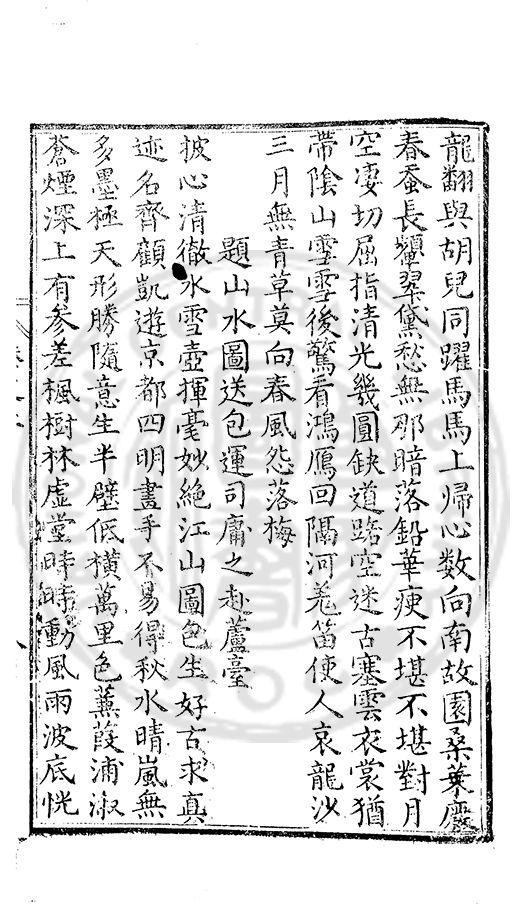 龍翻與胡兒同躍馬馬上歸心數向南故園桑葉應
春蚕長顰翠黛愁無那暗落鉛華瘦不堪不堪對月
空凄切屈指清光幾圓缺道路空迷古塞雲衣裳猶
帶陰山雪雪後驚看鴻鴈回隔河羌笛使人哀龍沙
三月無青草莫向春風怨落梅
題山水圖送包運司庸之赴蘆臺
披心清徹水雪壺揮毫妙絕江山圖包生好古求真
迹名齊顧凱遊京都四明畫手不易得秋水晴嵐無
多墨極天形勝隨意生半壁低橫萬里色蒹葭浦溆
蒼煙深上有參差楓樹林虛堂時時動風雨波底恍